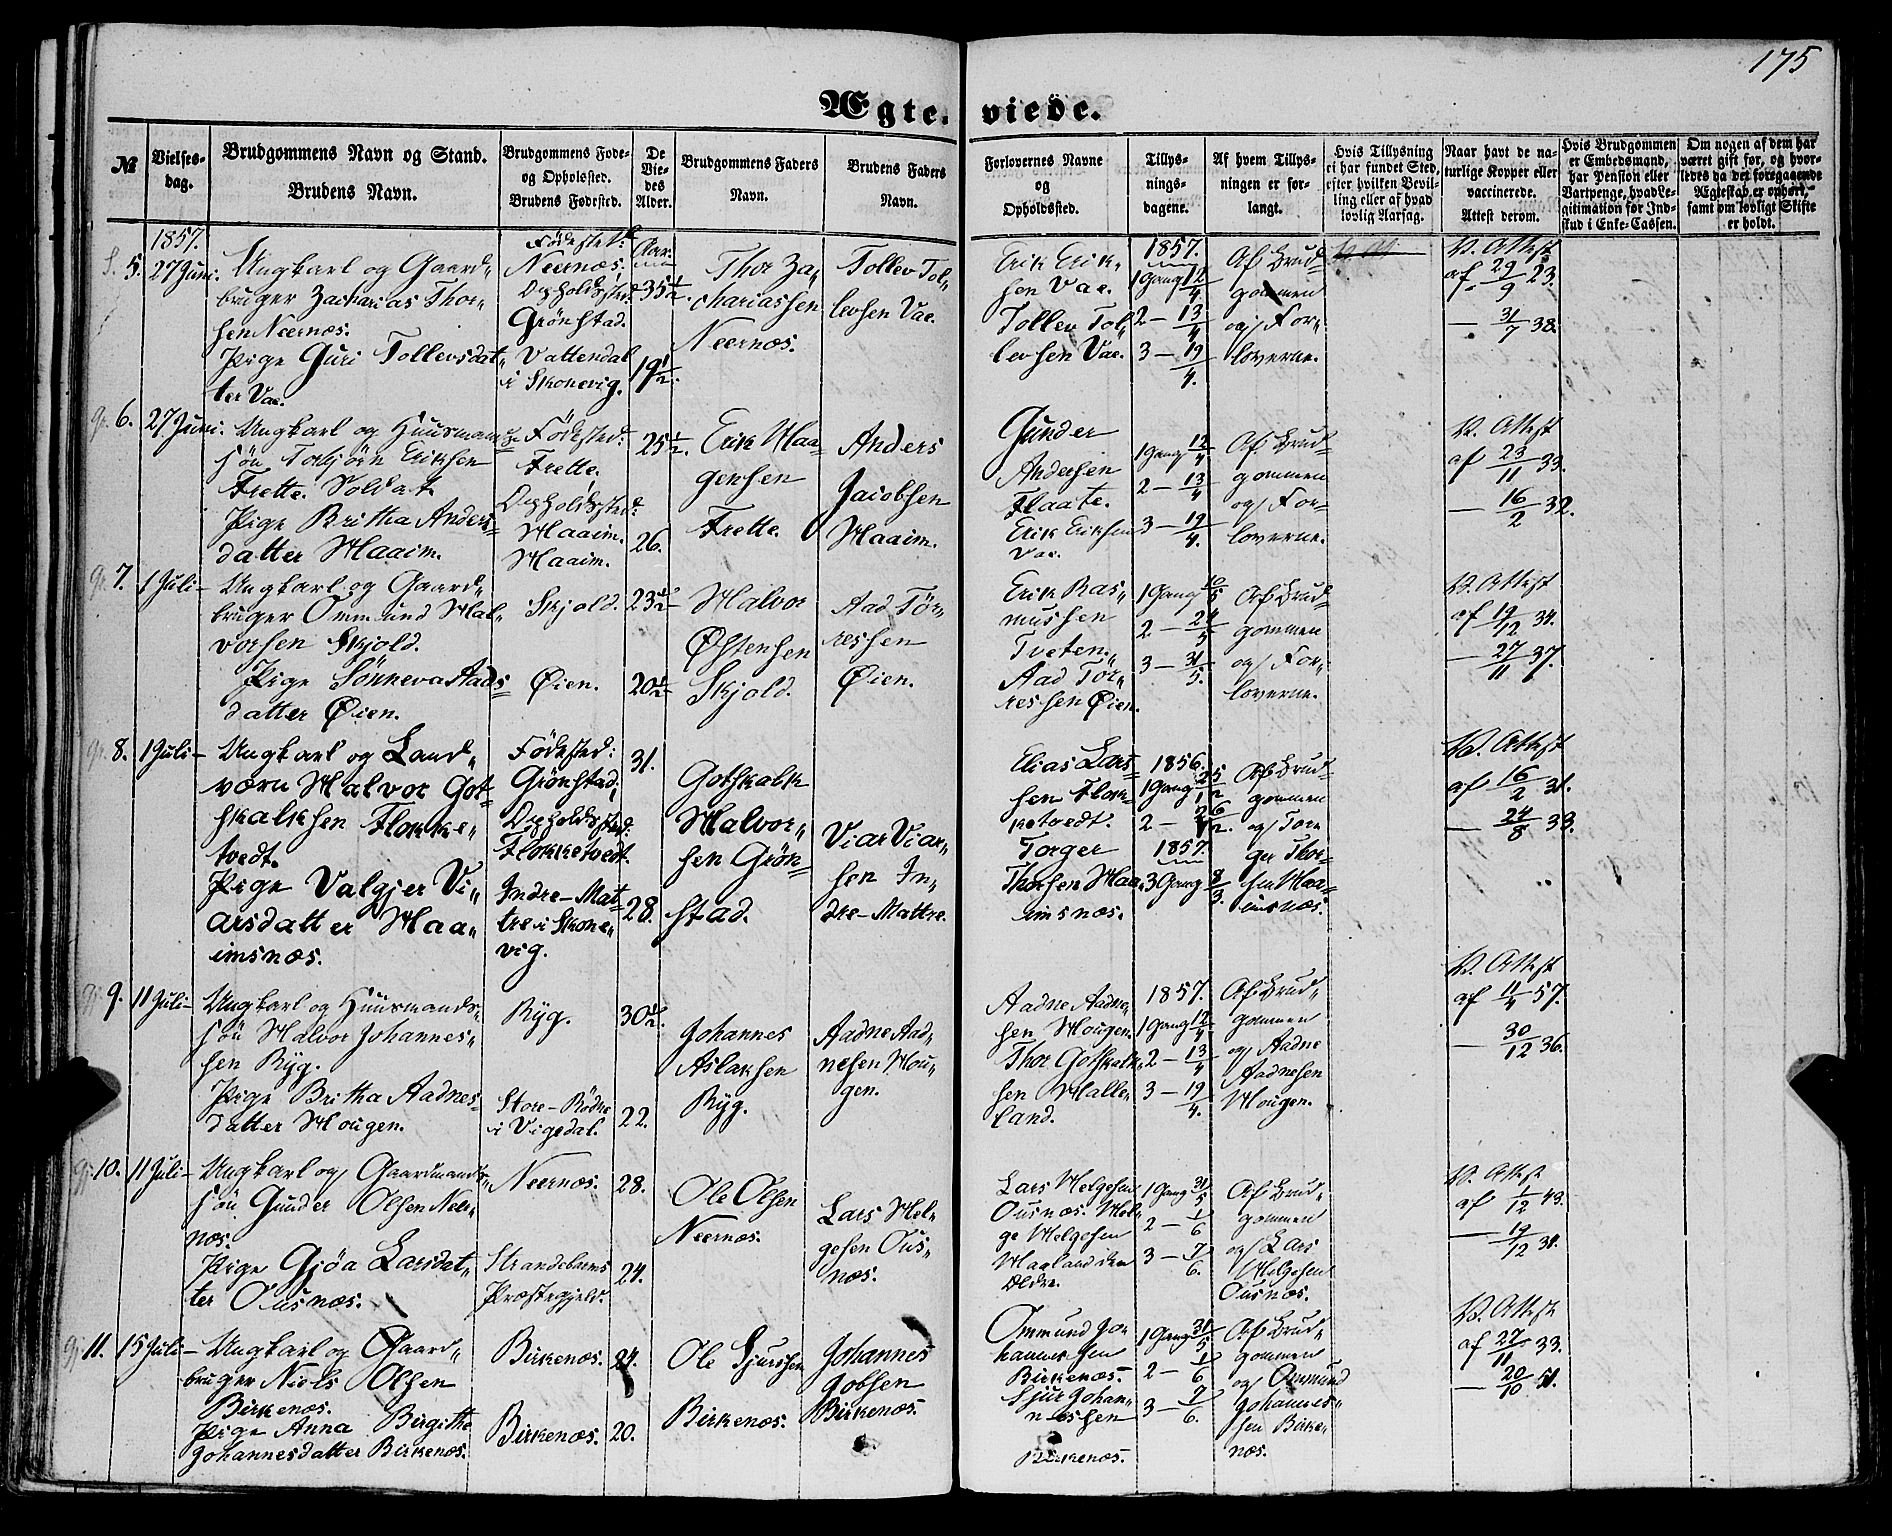 175
Ægte- viede.
№
Vielses-
dag.
Brudgommens Navn og Stand.
Brudens Navn.
Brudgommens Føde-
og Opholdsted.
Brudens Fødested.
De
Vie-
des
Alder.
Brudgommens Faders
Navn.
Brudens Faders
Navn.
Forlovernes Navne
og
Opholdsted.
Tillys-
nings-
dagene.
Af hvem Tillys-
ningen er for-
langt.
Hvis Tillysning
ei har fundet Sted,
efter hvilken Bevil-
ling eller af hvad
lovlig Aarsag.
Naar havt de na-
turlige Kopper eller
vaccinerede.
Attest derom.
Hvis Brudgommen
er Embedsmand,
har Pension eller
Vartpenge, hvad Le-
gitimation for Ind-
skud i Enke-Cassen.
Om nogen af dem har
været gift før, og hvor-
ledes da det foregaaende
Ægteskab er ophørt,
samt om lovligt Skifte
er holdt.
1857.
5. 27 Juni.
Ungkarl og Gaard„
bruger Zacharias Thor„
sen Neernæs.
Pige Guri Tollevsdat„
ter Vae.
Fødested:
Neernæs;
Opholdssted:
Grönstad.
Vattendal
i Skonevig.
Aar.
35½.
19½.
Thor Za„
chariassen
Neernæs.
Tollev Tol„
levsen Vae.
Erik Erik„
sen Vae.
Tollev Tol„
levsen Vae.
1857.
1 Gang 12/4
2 — 13/4
3 — 19/4.
Af Brud„
gommen
og For„
loverne.
V. Attest
af 29/9 23.
— 31/7 38.
6. 27 Juni.
Ungkarl og Huusmands„
sön Torbjörn Eriksen
Frette. Soldat.
Pige Britha Anders„
datter Haaim.
Fødested:
Frette.
Opholdssted:
Haaim.
Haaim.
25½.
26.
Erik Haa„
gensen
Frette.
Anders
Jacobsen
Haaim.
Gunder
Andersen
Flaate.
Erik Eriksen
Vae.
1 Gang 12/4
2 — 13/4
3 — 19/4.
Af Brud„
gommen
og For„
loverne.
V. Attest
af 23/11 33.
— 16/2 32.
7. 1 Juli —
Ungkarl og Gaard„
bruger Ommund Hal„
vorsen Skjold.
Pige Sönneva Aads„
datter Øien.
Skjold.
Øien.
23½
20½
Halvor
Østensen
Skjold.
Aad Tör„
ressen
Øien.
Erik Ras„
mussen
Tveten.
Aad Tör„
ressen Øien.
1 Gang 10/5
2 — 24/5
3 — 31/5.
Af Brud„
gommen
og For„
loverne.
V. Attest
af 19/12 34.
— 27/11 37.
8. 1 Juli —
Ungkarl og Land„
værn Halvor Got„
skalksen Flokke„
tvedt.
Pige Valgjer Vi„
arsdatter Haa„
imsnæs.
Fødested:
Grönstad;
Opholdssted:
Flokketvedt.
Indre-Mat„
tre i Skone„
vig.
31.
28.
Gotskalk
Halvor„
sen Grön„
stad.
Viar Viar„
sen In„
dre-Mattre.
Elias Lars„
sen Flok„
ketvedt.
Torger
Thorsen Haa„
imsnæs.
1856.
1 Gang 25/12
2 — 26/12.
1857.
3 Gang 8/3.
Af Brud„
gommen
og Tor„
ger Thor„
sen Haa„
imsnæs.
V. Attest
af 16/2 31.
— 24/8 33.
9. 11 Juli —
Ungkarl og Huusmands„
sön Halvor Johannes„
sen Ryg.
Pige Britha Aadnes„
datter Hougen.
Ryg.
Store-Rødne
i Vigedal.
30½.
22.
Johannes
Aslaksen
Ryg.
Aadne Aad„
nesen Hou„
gen.
Aadne Aadne„
sen Hougen.
Thor Gotskalk„
sen Halle„
land.
1857.
1 Gang 12/4
2 — 13/4
3 — 19/4.
Af Brud„
gommen
og Aadne
Aadnesen
Hougen.
V. Attest
af 11/4 57.
— 30/12 36.
10. 11 Juli —
Ungkarl og Gaardmands„
sön Gunder Olsen Neer„
næs.
Pige Gjöa Larsdat„
ter Ousnæs.
Neernæs.
Strandebarms
Præstegjeld.
28.
24.
Ole Olsen
Neernæs.
Lars Hel„
gesen Ous„
næs.
Lars Helgesen
Ousnæs. Hel„
ge Helgesen
Haaland den
Ældre.
1 Gang 31/5
2 — 1/6
3 — 7/6.
Af Brud„
gommen
og Lars
Helgesen
Ousnæs.
V. Attest
af 1/12 43.
— 19/12 31.
11. 15 Juli —
Ungkarl og Gaard„
bruger Niels Olsen
Birkenæs.
Pige Anna Birgithe
Johannesdatter Birkenæs.
Birkenæs.
Birkenæs.
24.
20.
Ole Sjurssen
Birkenæs.
Johannes
Jobsen
Birkenæs.
Ommund Jo„
hannessen
Birkenæs.
Sjur Johan„
nessen
Birkenæs.
1 Gang 31/5
2 — 1/6
3 — 7/6.
Af Brud„
gommen
og Ommund
Johannes„
sen Birke„
næs.
V. Attest
af 27/11 33.
— 20/10 51.